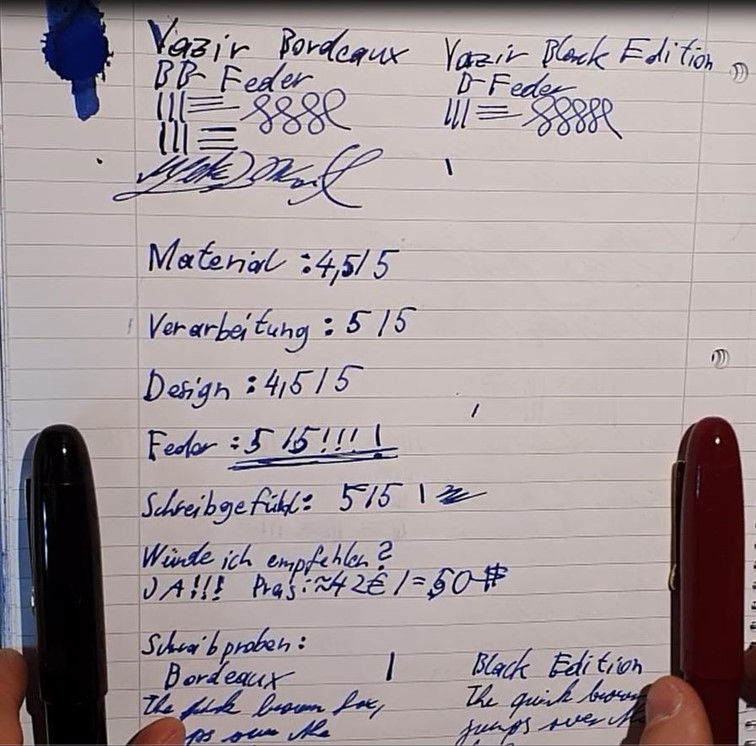 Yazir Bordeaux
BB-Feder
Yazir Black Edition
B-Feder
Material : 4,5/5
Verarbeitung : 5/5
Design : 4,5/5
Feder : 5/5!!!!
Schreibgefühl: 5/5
Würde ich empfehlen?
JA!!! Preis: ≈42€ /= 50 $
Schreibproben:
Bordeaux
The brown fox,
over the
Black Edition
The quick brown
jumps over the